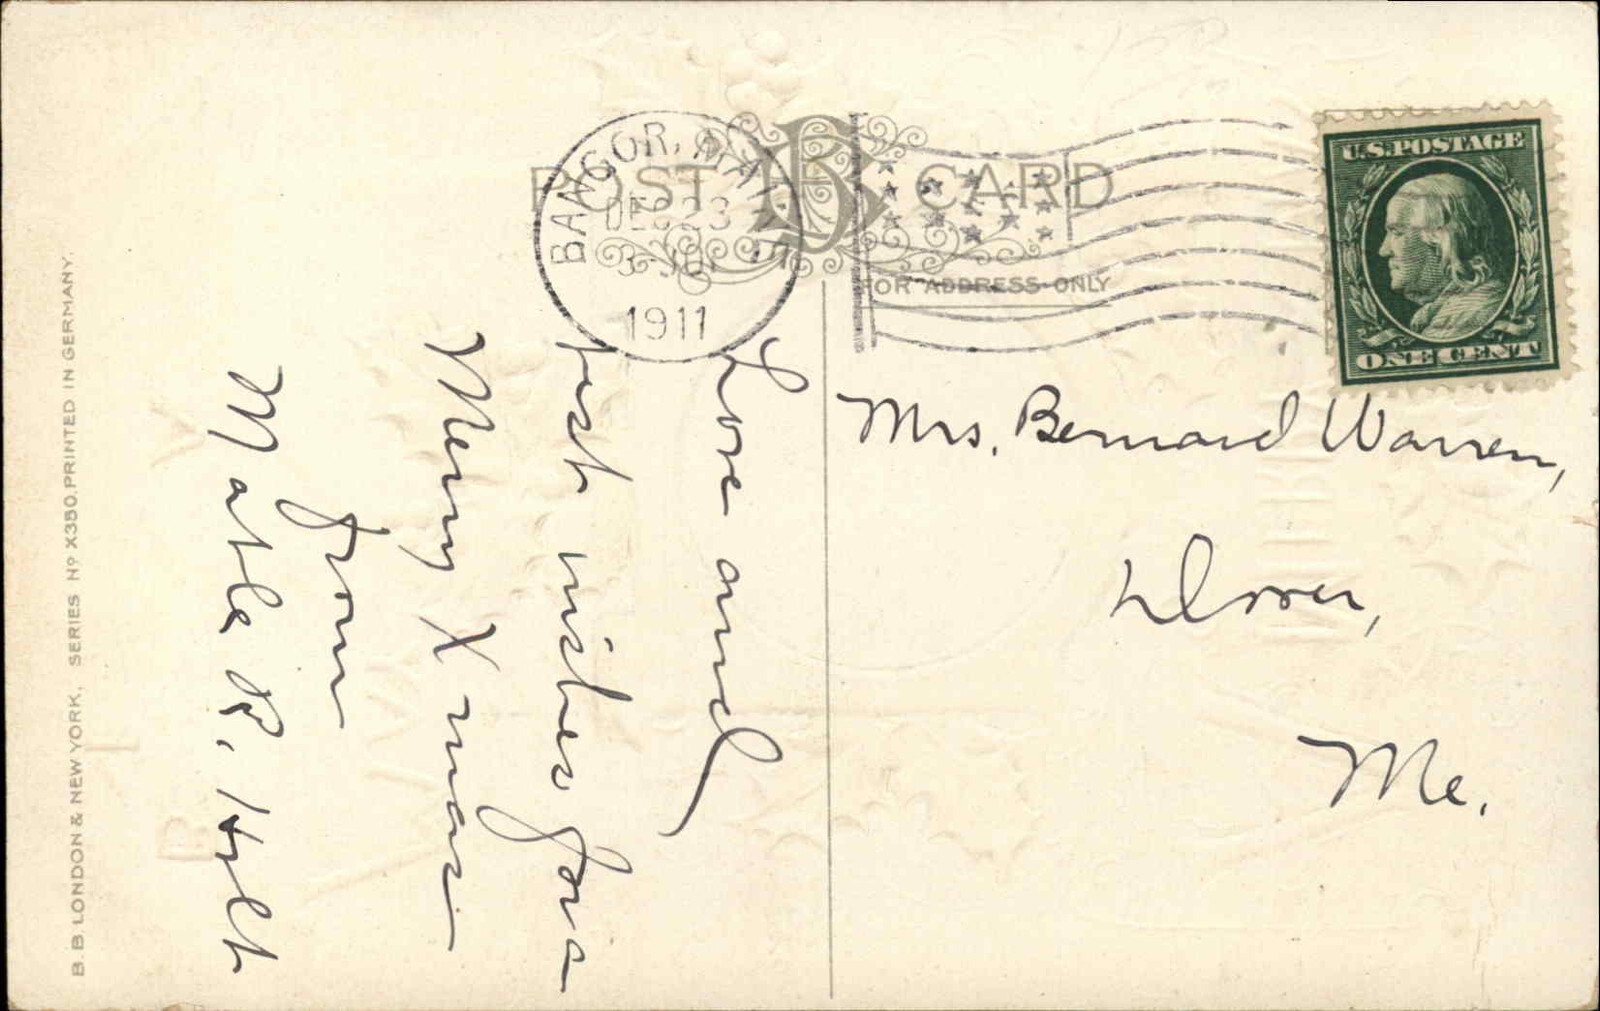 POST CARD
FOR ADDRESS ONLY
BANGOR, MAINE
DEC 23
3-30P
1911
U.S. POSTAGE
ONE CENT
Mrs. Bernard Warren,
Dover,
Me.
Love and
best wishes for a
Merry Xmas
from
Mable R. Holt
B. B. LONDON & NEW YORK. SERIES Nº X350. PRINTED IN GERMANY.